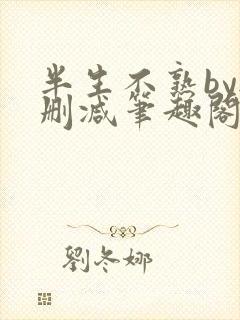 半生不熟by
删减笔趣阁
劉冬娜